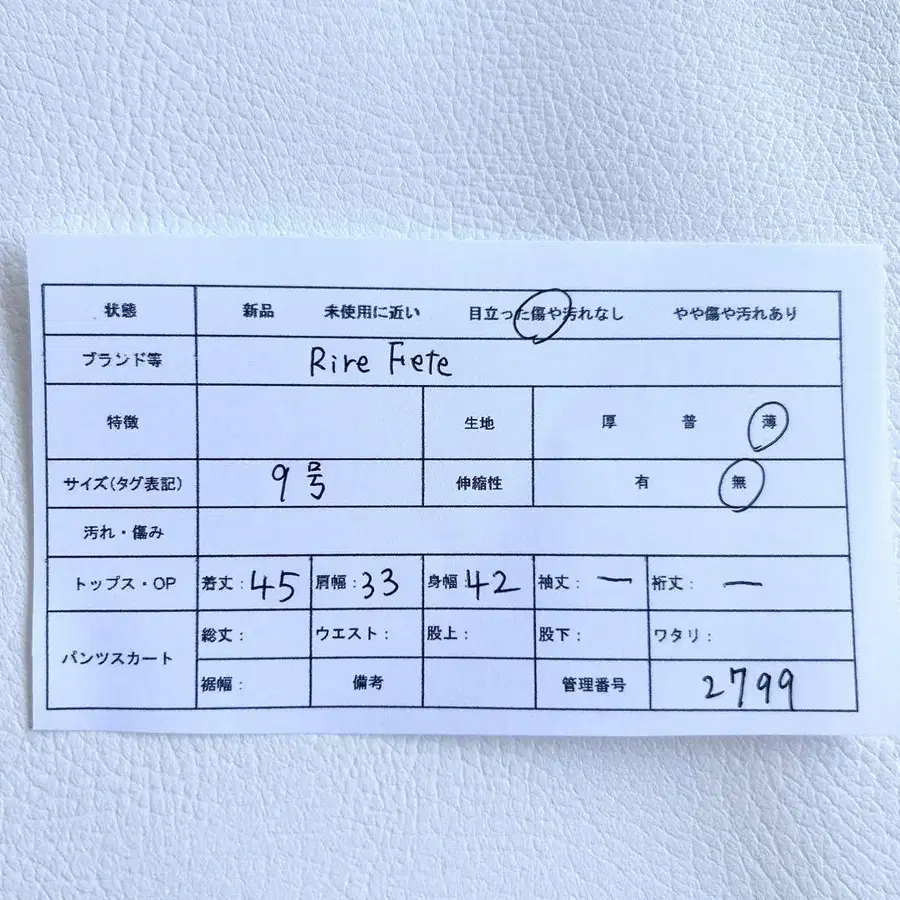 状態 新品 未使用に近い 目立った傷や汚れなし やや傷や汚れあり
ブランド等 Rire Fete
特徴 生地 厚 普 薄
サイズ(タグ表記) 9号 伸縮性 有 無
汚れ・傷み
トップス・OP 着丈:45 肩幅:33 身幅:42 袖丈:ー 裄丈:ー
パンツスカート 総丈: ウエスト: 股上: 股下: ワタリ:
裾幅: 備考 管理番号 2799